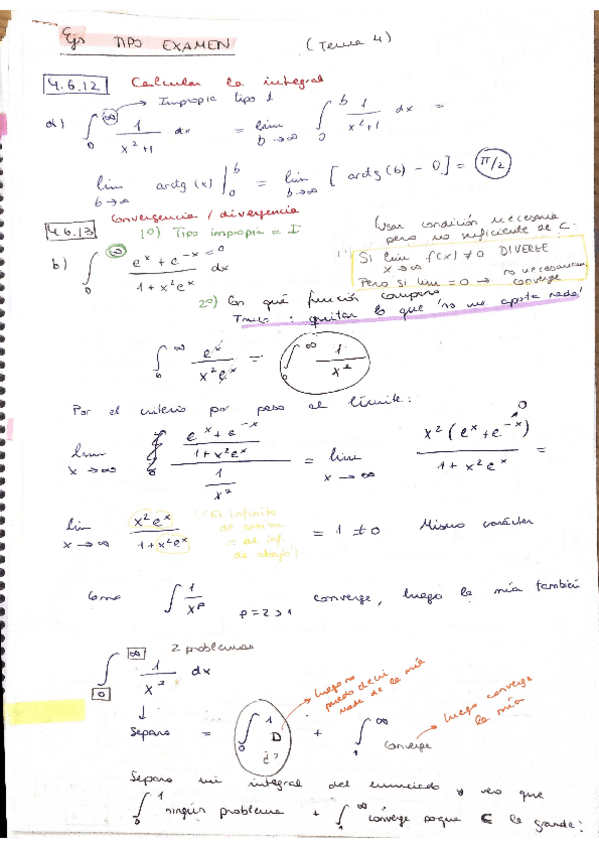 Ejs TIPO EXAMEN (Tema 4)
4.6.12 Calcular la integral
→ Impropia tipo 1
a) ∫₀^∞ 1/(x²+1) dx = lim b→∞ ∫₀^b 1/(x²+1) dx =
lim b→∞ arctg(x) |₀^b = lim b→∞ [arctg(b) - 0] = π/2
Convergencia / divergencia
4.6.13 1º) Tipo impropia = I
Usar condición necesaria
pero no suficiente de C.
b) ∫₀^∞ (e^x + e^-x → 0)/(1+x²e^x) dx
Si lim x→∞ f(x) ≠ 0 DIVERGE
Pero si lim = 0 → no necesariamen converge
2º) Con qué función comparo
Truco: quitar lo que 'no me aporta nada'
∫₀^∞ e^x/(x²e^x) = ∫₀^∞ 1/x²
Por el criterio por paso al límite:
lim x→∞ ((e^x + e^-x)/(1+x²e^x))/(1/x²) = lim x→∞ x²(e^x + e^-x → 0)/(1+x²e^x) =
lim x→∞ x²e^x/(1+x²e^x) (el infinito de arriba = al inf. de abajo) = 1 ≠ 0 Mismo carácter
Como ∫ 1/x^p p=2>1 converge, luego la mía también
2 problemas
∫₀^∞ 1/x² dx
↓
Separo = ∫₀^1 D ¿? + ∫₁^∞ converge
luego no puedo decir nada de la mía
luego converge la mía
Separo mi integral del enunciado y veo que
∫₀^1 ningún problema + ∫₁^∞ converge porque la grande: